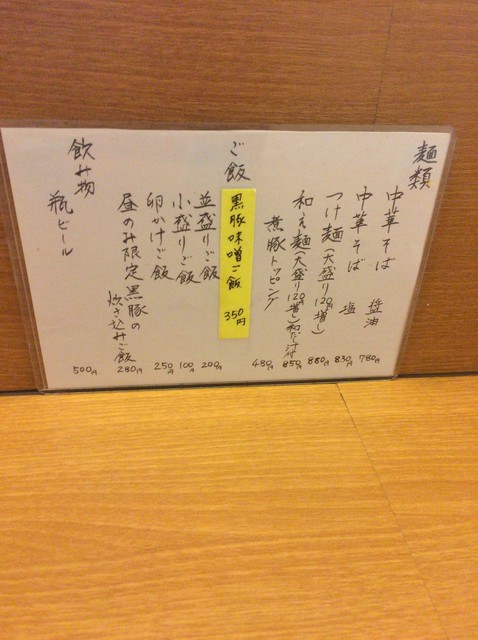 麺類
中華そば 醤油 780円
中華そば 塩 830円
つけ麺(大盛り120円増し) 880円
和え麺(大盛り120円増し)和だし付 850円
煮豚トッピング 480円
ご飯
黒豚味噌ご飯 350円
並盛りご飯 200円
小盛りご飯 100円
卵かけご飯 250円
昼のみ限定黒豚の
炊き込みご飯 280円
飲み物
瓶ビール 500円